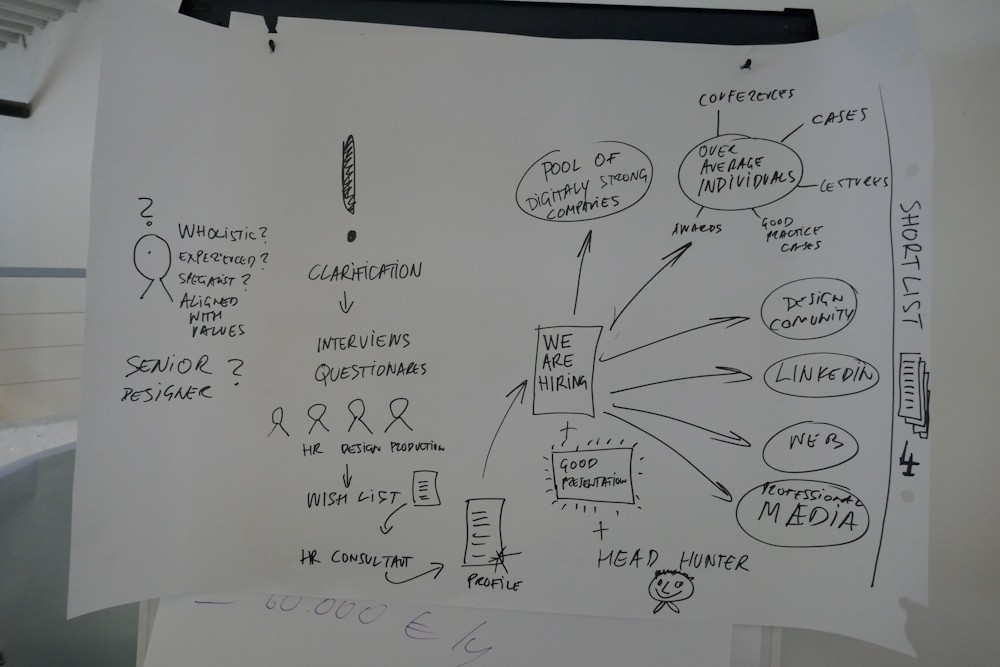 ?
WHOLISTIC?
EXPERIENCED?
SPECIALIST?
ALIGNED
WITH
VALUES
SENIOR ?
DESIGNER
!
CLARIFICATION
INTERVIEWS
QUESTIONARES
HR DESIGN PRODUCTION
WISH LIST
HR CONSULTAUT
PROFILE
WE
ARE
HIRING
+
GOOD
PRESENTATION
+
HEAD HUNTER
POOL OF
DIGITALY STRONG
COMPANIES
CONFERENCES
CASES
OVER
AVERAGE
INDIVIDUALS
LECTURES
AWARDS
GOOD
PRACTICE
CASES
DESIGN
COMUNITY
LINKEDIN
WEB
PROFESSIONAL
MÆDIA
SHORTLIST
4
— 60.000 €/y